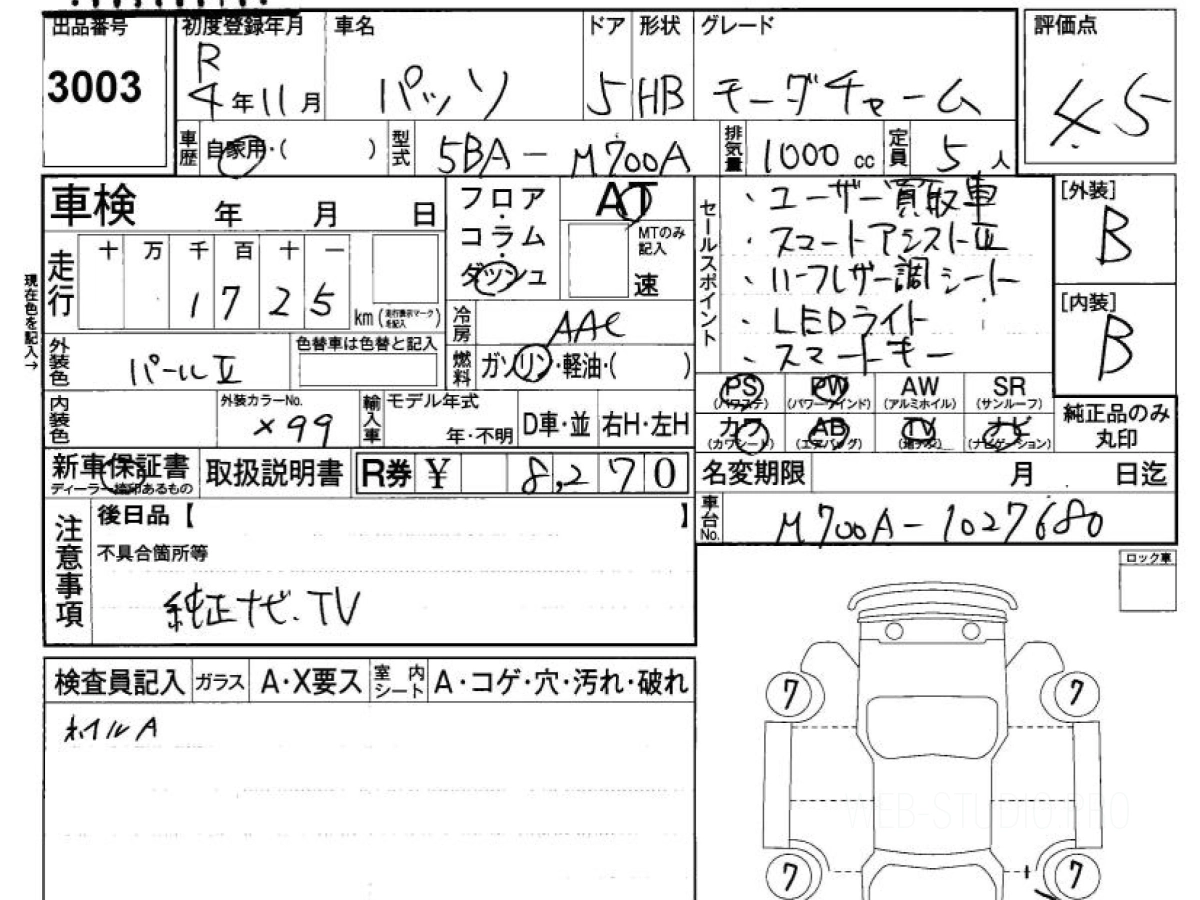 出品番号 初度登録年月 車名 ドア 形状 グレード 評価点
3003 R 4年11月 パッソ 5 HB モーダチャーム 4.5
車歴 自家用・( ) 型式 5BA-M700A 排気量 1000 cc 定員 5 人
車検 年 月 日
フロア・コラム・ダッシュ AT MTのみ記入 速
セールスポイント
・ユーザー買取車
・スマートアシストⅢ
・ハーフレザー調シート
・LEDライト
・スマートキー
[外装] B
[内装] B
現在色を記入→
走行 十 万 千 百 十 一
1 7 2 5 km (走行表示マークを記入)
冷房 AAC
外装色 パールⅡ 色替車は色替と記入
燃料 ガソリン・軽油・( )
PS (パワステ) PW (パワーウインド) AW (アルミホイル) SR (サンルーフ)
内装色 外装カラーNo. ×99 輸入車 モデル年式 年・不明 D車・並 右H・左H
カワ (カワシート) AB (エアバッグ) TV (地デジ) ナビ (ナビゲーション)
純正品のみ丸印
新車保証書 ディーラー捺印あるもの 取扱説明書 R券 ¥ 8,270
名変期限 月 日迄
車台No. M700A-1027680
注意事項 後日品【 】
不具合箇所等
純正ナビ.TV
ロック車
検査員記入 ガラス A・X要ス 室内シート A・コゲ・穴・汚れ・破れ
ホイルA
7 7
WEB-STUDIO.PRO
7 7